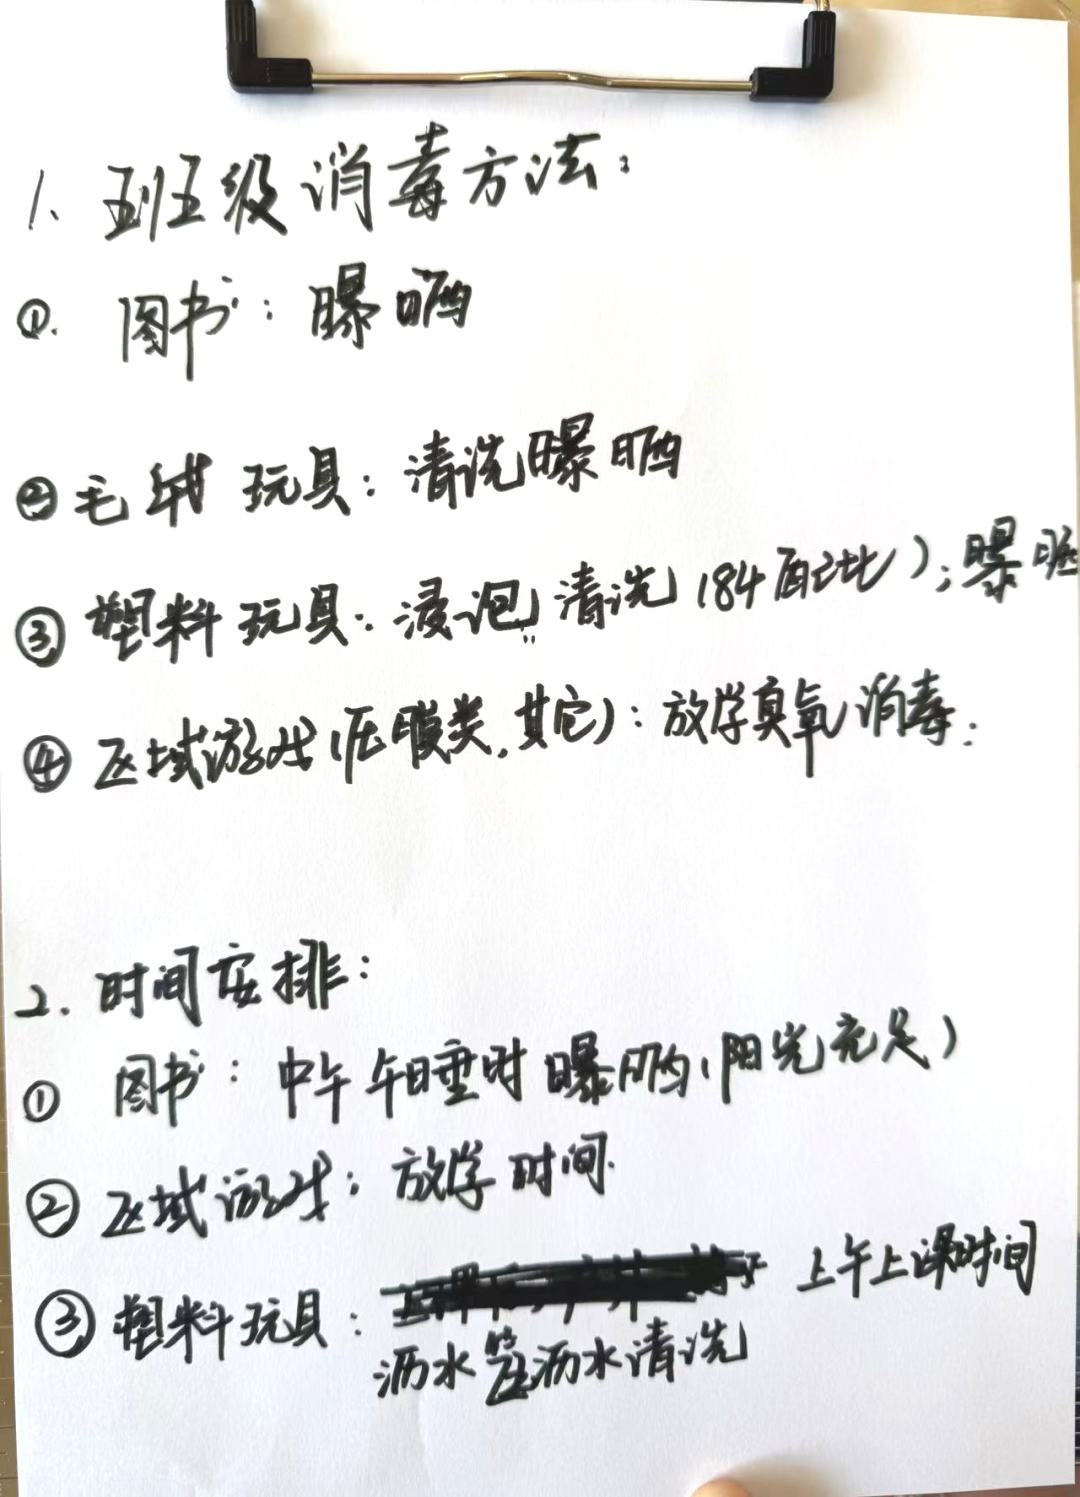 1、班级消毒方法:
①. 图书: 曝晒
② 毛绒玩具: 清洗曝晒
③ 塑料玩具: 浸泡清洗(84配比);曝晒
④ 区域游戏(压膜类,其它): 放学臭氧消毒.
2. 时间安排:
① 图书: 中午午睡时曝晒(阳光充足)
② 区域游戏: 放学时间.
③ 塑料玩具: 上午上课时间
沥水篮沥水清洗